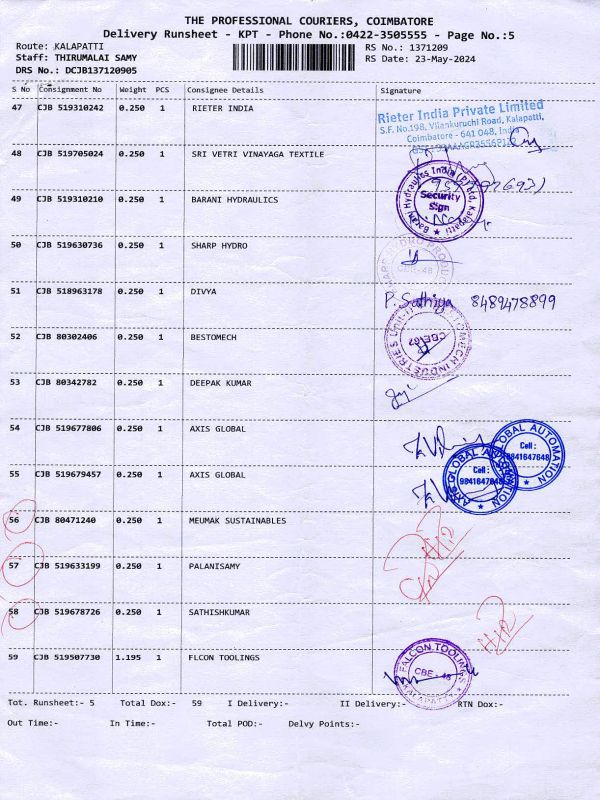 THE PROFESSIONAL COURIERS, COIMBATORE
Delivery Runsheet - KPT - Phone No.:0422-3505555 - Page No.:5
Route: KALAPATTI
RS No.: 1371209
Staff: THIRUMALAI SAMY
RS Date: 23-May-2024
DRS No.: DCJB137120905
S No Consignment No Weight PCS Consignee Details Signature
47 CJB 519310242 0.250 1 RIETER INDIA
Rieter India Private Limited
S.F. No.198, Vilankuruchi Road, Kalapatti,
Coimbatore - 641 048, India
48 CJB 519705024 0.250 1 SRI VETRI VINAYAGA TEXTILE
49 CJB 519310210 0.250 1 BARANI HYDRAULICS
Barani Hydraulics India (P) Ltd, Kalapatti
Security
Sign
50 CJB 519630736 0.250 1 SHARP HYDRO
CBE-48
51 CJB 518963178 0.250 1 DIVYA P. Sathiya 8489478899
52 CJB 80302406 0.250 1 BESTOMECH
INDUSTRIES
53 CJB 80342782 0.250 1 DEEPAK KUMAR
54 CJB 519677806 0.250 1 AXIS GLOBAL
GLOBAL AUTOMATION
Cell :
9841647648
55 CJB 519679457 0.250 1 AXIS GLOBAL
AXIS GLOBAL AUTOMATION
Cell :
9841647648
56 CJB 80471240 0.250 1 MEUMAK SUSTAINABLES
57 CJB 519633199 0.250 1 PALANISAMY
58 CJB 519678726 0.250 1 SATHISHKUMAR
59 CJB 519507730 1.195 1 FLCON TOOLINGS
FALCON TOOLINGS
CBE - 48
KALAPATTI
Tot. Runsheet:- 5 Total Dox:- 59 I Delivery:- II Delivery:- RTN Dox:-
Out Time:- In Time:- Total POD:- Delvy Points:-